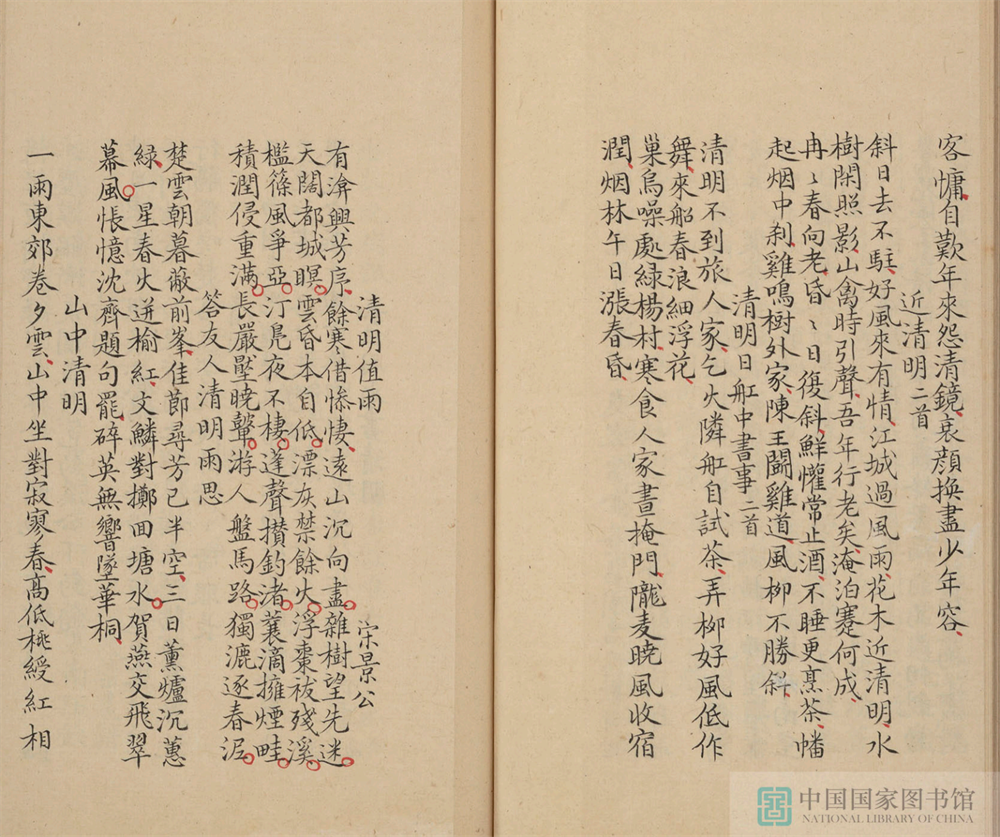 客慵自歎年來怨清鏡衰顏換盡少年容
近清明二首
斜日去不駐好風來有情江城過風雨花木近清明水
樹閑照影山禽時引聲吾年行老矣淹泊蹇何成
冉〻春向老昏〻日復斜鮮懽常止酒不睡更烹茶幡
起烟中刹雞鳴樹外家陳王鬪雞道風柳不勝斜
清明日舡中書事二首
清明不到旅人家乞火隣舡自試茶弄柳好風低作
舞來船春浪細浮花
巢烏噪處綠楊村寒食人家晝掩門隴麦曉風收宿
潤烟林午日漲春昏
清明值雨
宋景公
有渰興芳序餘寒借慘悽遠山沉向盡雜樹望先迷
天闊都城瞑雲昏本自低漂灰禁餘火浮棗祓殘溪
檻篠風爭亞汀鳧夜不棲蓬聲攢釣渚蓑滴擁煙畦
積潤侵重滿長嚴壓曉鼙游人盤馬路獨漉逐春泥
答友人清明雨思
楚雲朝暮蔽前峯佳節尋芳已半空三日薰爐沉蕙
綠一星春火迸榆紅文鱗對擲回塘水賀燕交飛翠
幕風悵憶沈齊題句罷碎英無響墜華桐
山中清明
一雨東郊卷夕雲山中坐對寂寥春高低桃綬紅相
中国国家图书馆
NATIONAL LIBRARY OF CHINA